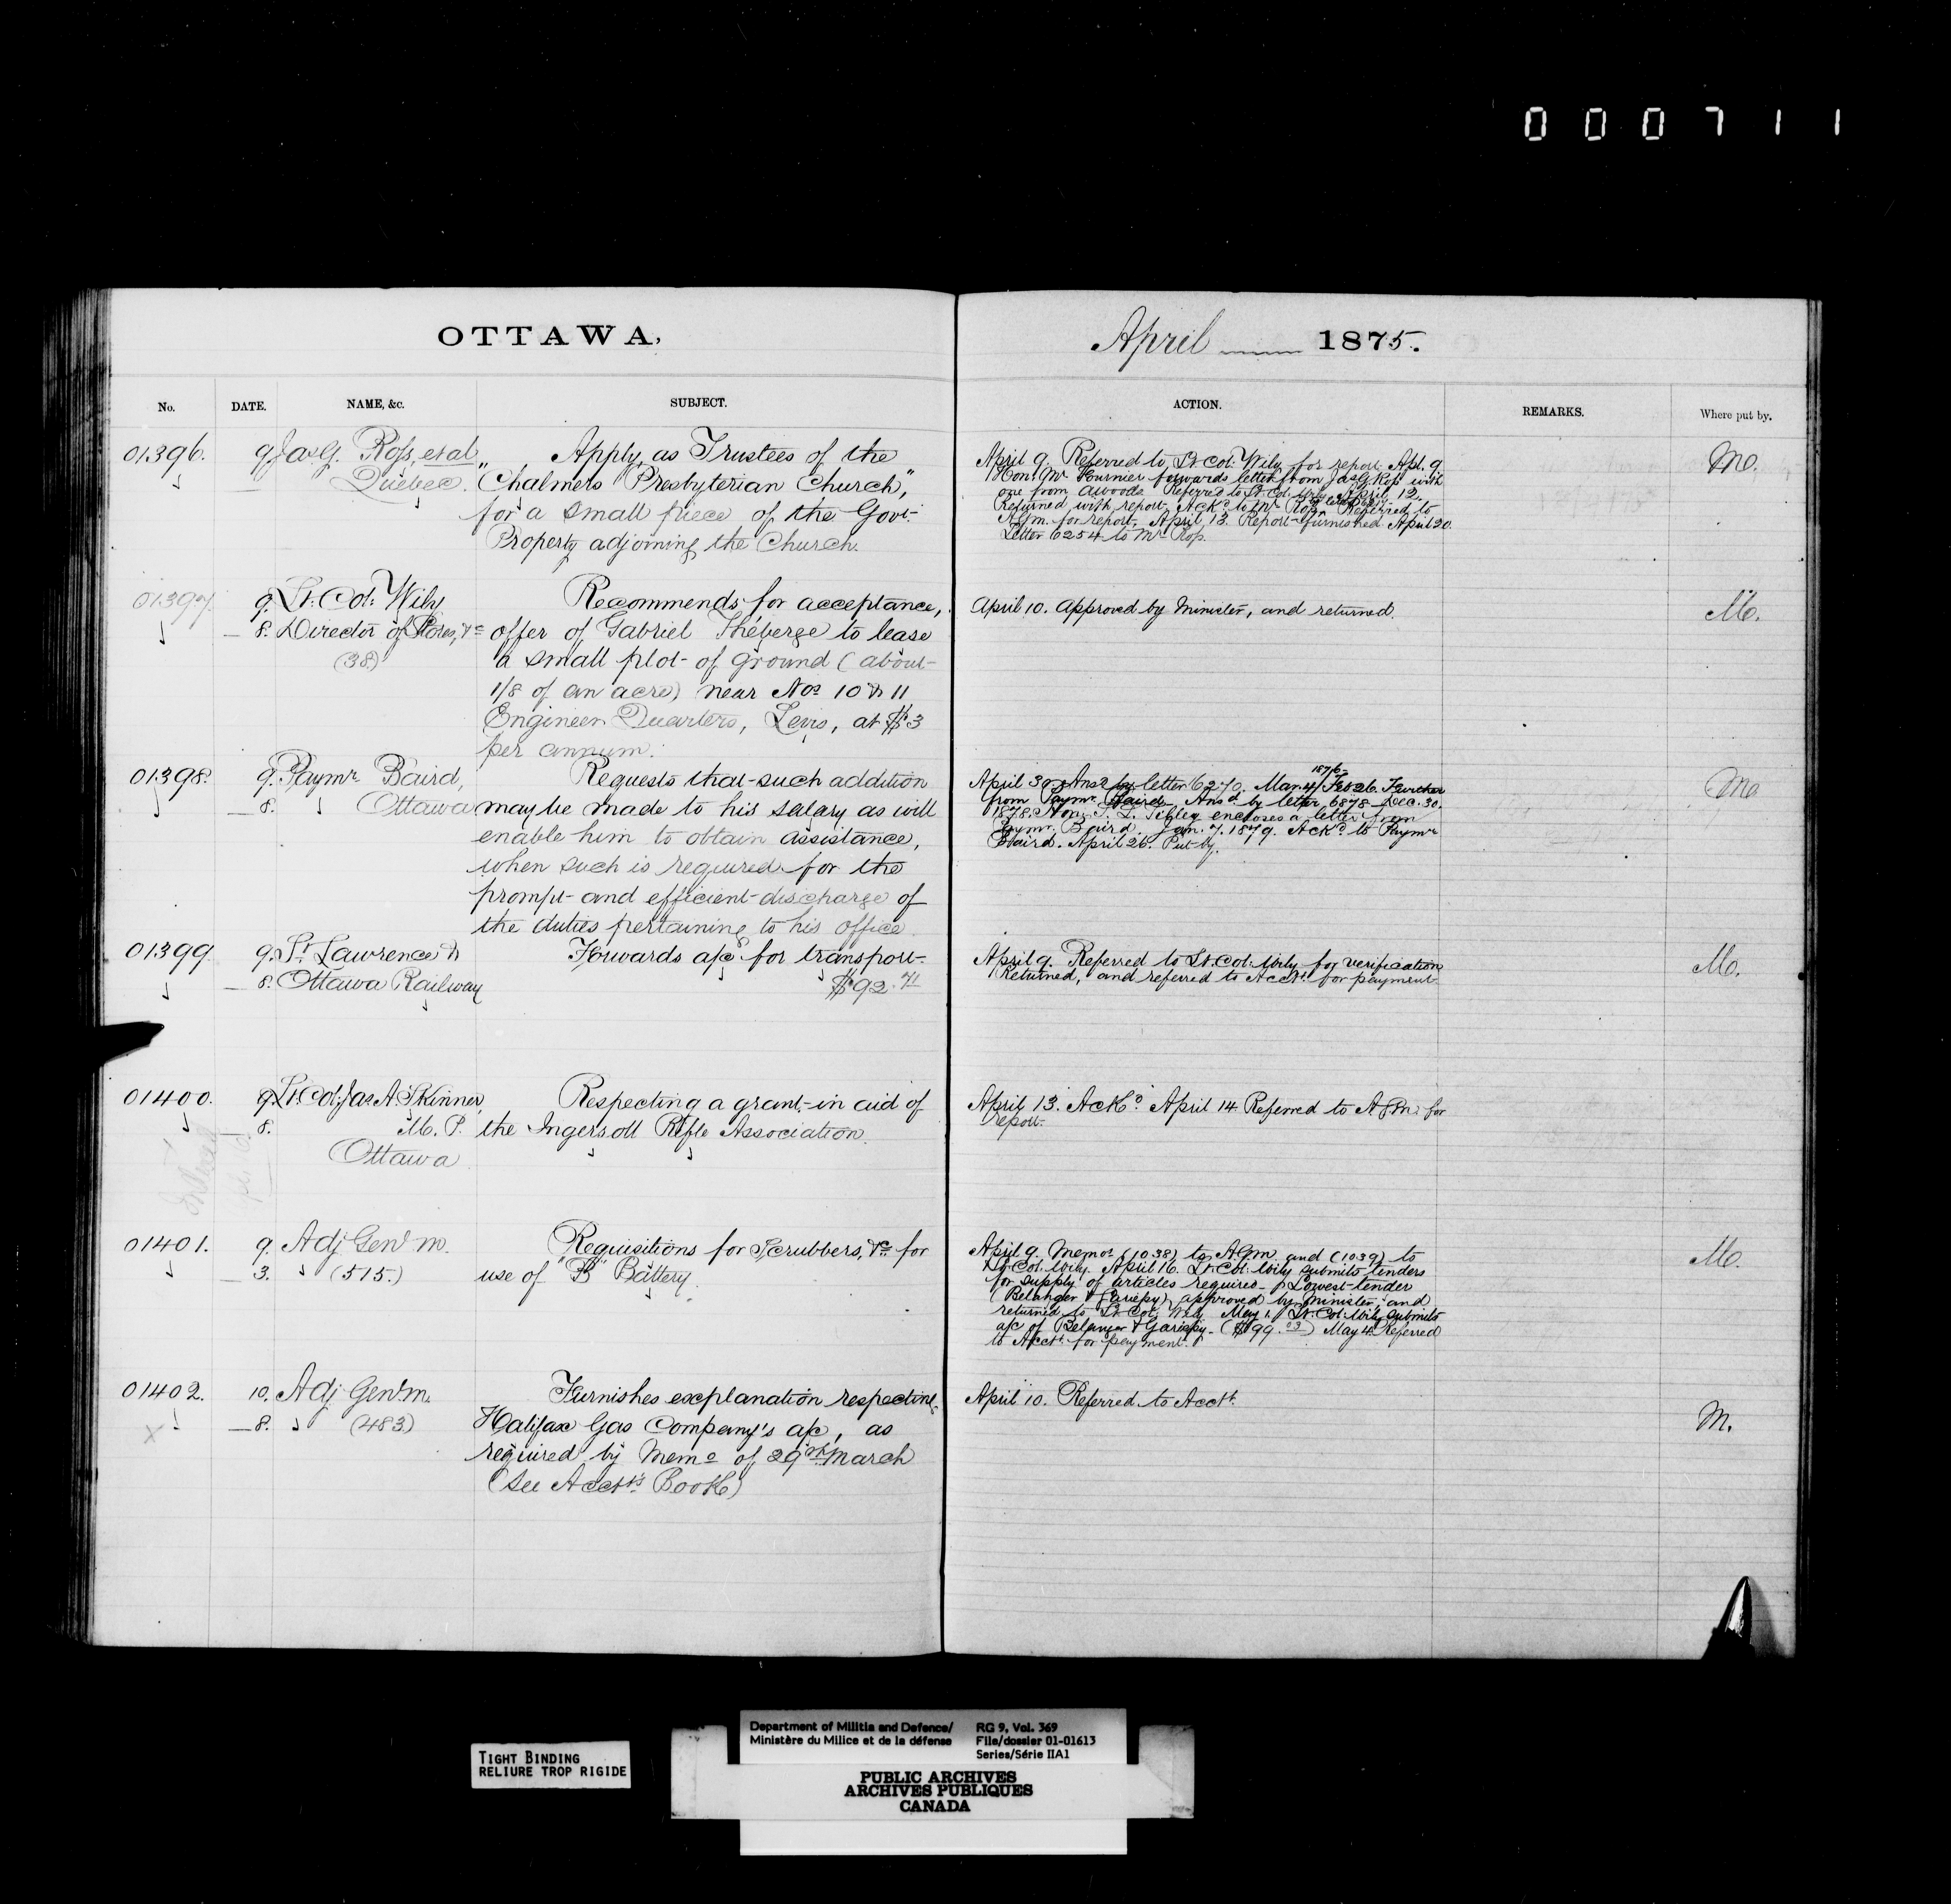 000711
OTTAWA,
April 1875.
No.
DATE.
NAME, &c.
SUBJECT.
ACTION.
REMARKS.
Where put by.
01396.
9 Jas G. Ross, et al
Quebec.
Apply, as Trustees of the
"Chalmers Presbyterian Church,"
for a small piece of the Govt.
Property adjoining the Church.
April 9. Referred to Lt. Col: Wily for report. Apl. 9.
Honl. Mr. Fournier forwards letter from Jas G Ross with
one from Awoods. Referred to Lt. Col. Wily. April 12.
Returned with report. Ackd. to Mr. Ross. Referred to
AGm. for report. April 13. Report furnished. April 20.
Letter 6254 to Mr. Ross.
Mo.
01397.
9. Lt: Col: Wily
8. Director of Stores, &c
(38)
Recommends for acceptance,
offer of Gabriel Théberge to lease
a small plot of ground (about
1/8 of an acre) near Nos 10 & 11
Engineer Quarters, Levis, at $3
per annum.
April 10. Approved by Minister, and returned.
Mo.
01398.
9. Paymr. Baird,
8. Ottawa
Requests that such addition
may be made to his salary as will
enable him to obtain assistance,
when such is required for the
prompt and efficient discharge of
the duties pertaining to his office.
1876
April 30. Ansd by letter 6270. Mar. 4/ Feb 26. Further
from Paymr. Baird. Ansd. by letter 6878. Dec. 30.
1878. Hon. T. L. Tibley encloses a letter from
Paymr. Baird. Jan. 7. 1879. Ackd. to Paymr
Baird. April 26. Put by.
Mo
01399
9. St. Lawrence &
8. Ottawa Railway
Forwards a/c for transport
$92.71
April 9. Referred to Lt. Col: Wily for verification
Returned, and referred to Acct. for payment
Mo.
01400.
9. Lt. Col: Jas A. Skinner,
8. M. P.
Ottawa
Respecting a grant in aid of
the Ingersoll Rifle Association.
April 13. Ackd. April 14 Referred to AGm. for
report.
01401.
9. Adj Genl m.
3. (515.)
Requisitions for Scrubbers, &c for
use of "B" Battery.
April 9. Memos (1038) to AGm and (1039) to
Lt. Col. Wily. April 16. Lt. Col: Wily submits tenders
for supply of articles required. Lowest tender
(Belanger & Gariepy) approved by Minister and
returned to Lt Col Wily May 1. Lt. Col: Wily submits
a/c of Belanger & Gariepy. ($99.03) May 4 Referred
to Acct. for payment.
Mo.
01402.
10. Adj Genl. m.
8. (483)
Furnishes explanation respecting
Halifax Gas Company's a/c, as
required by Memo of 29th March
(See Acct's Book)
April 10. Referred to Acct.
M.
X
TIGHT BINDING
RELIURE TROP RIGIDE
Department of Militia and Defence/
Ministère du Milice et de la défense
RG 9, Vol. 369
File/dossier 01-01613
Series/Série IIA1
PUBLIC ARCHIVES
ARCHIVES PUBLIQUES
CANADA